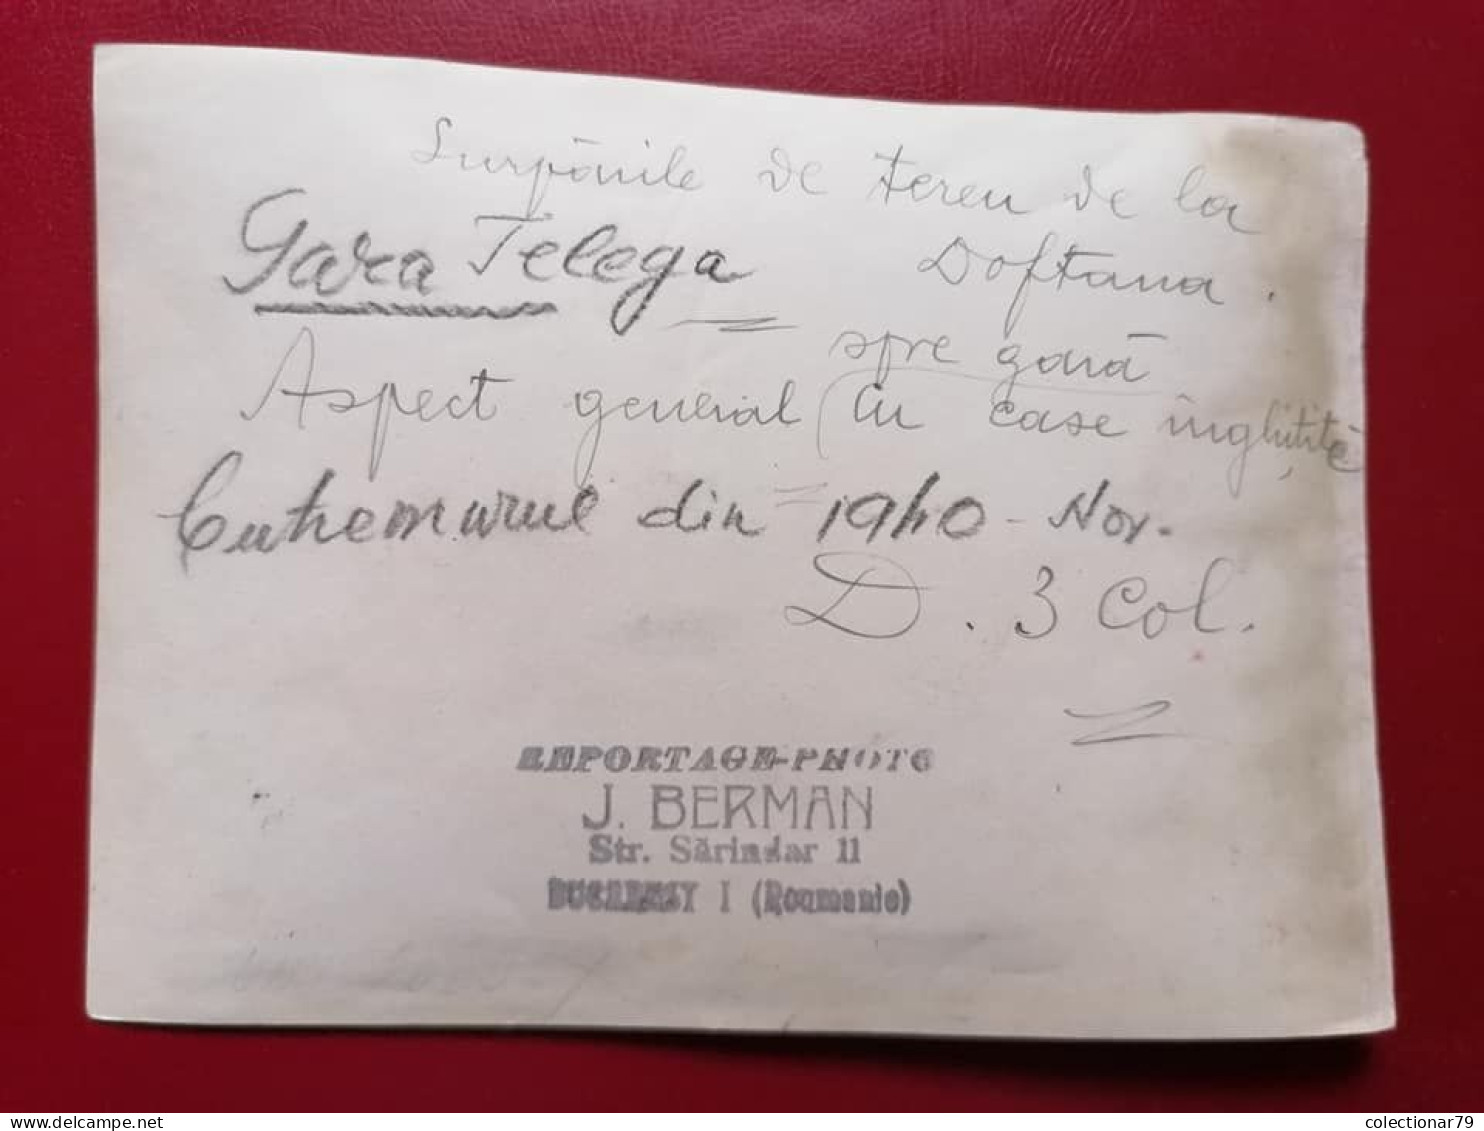 Surpările de teren de la
Doftana.
Gara Telega
spre gară
Aspect general cu case înghițite
Cutremurul din 1940 - Nov.
D. 3 col.
REPORTAGE-PHOTO
J. BERMAN
Str. Sărindar 11
BUCAREST I (Roumanie)
delcampe.net
colectionar79